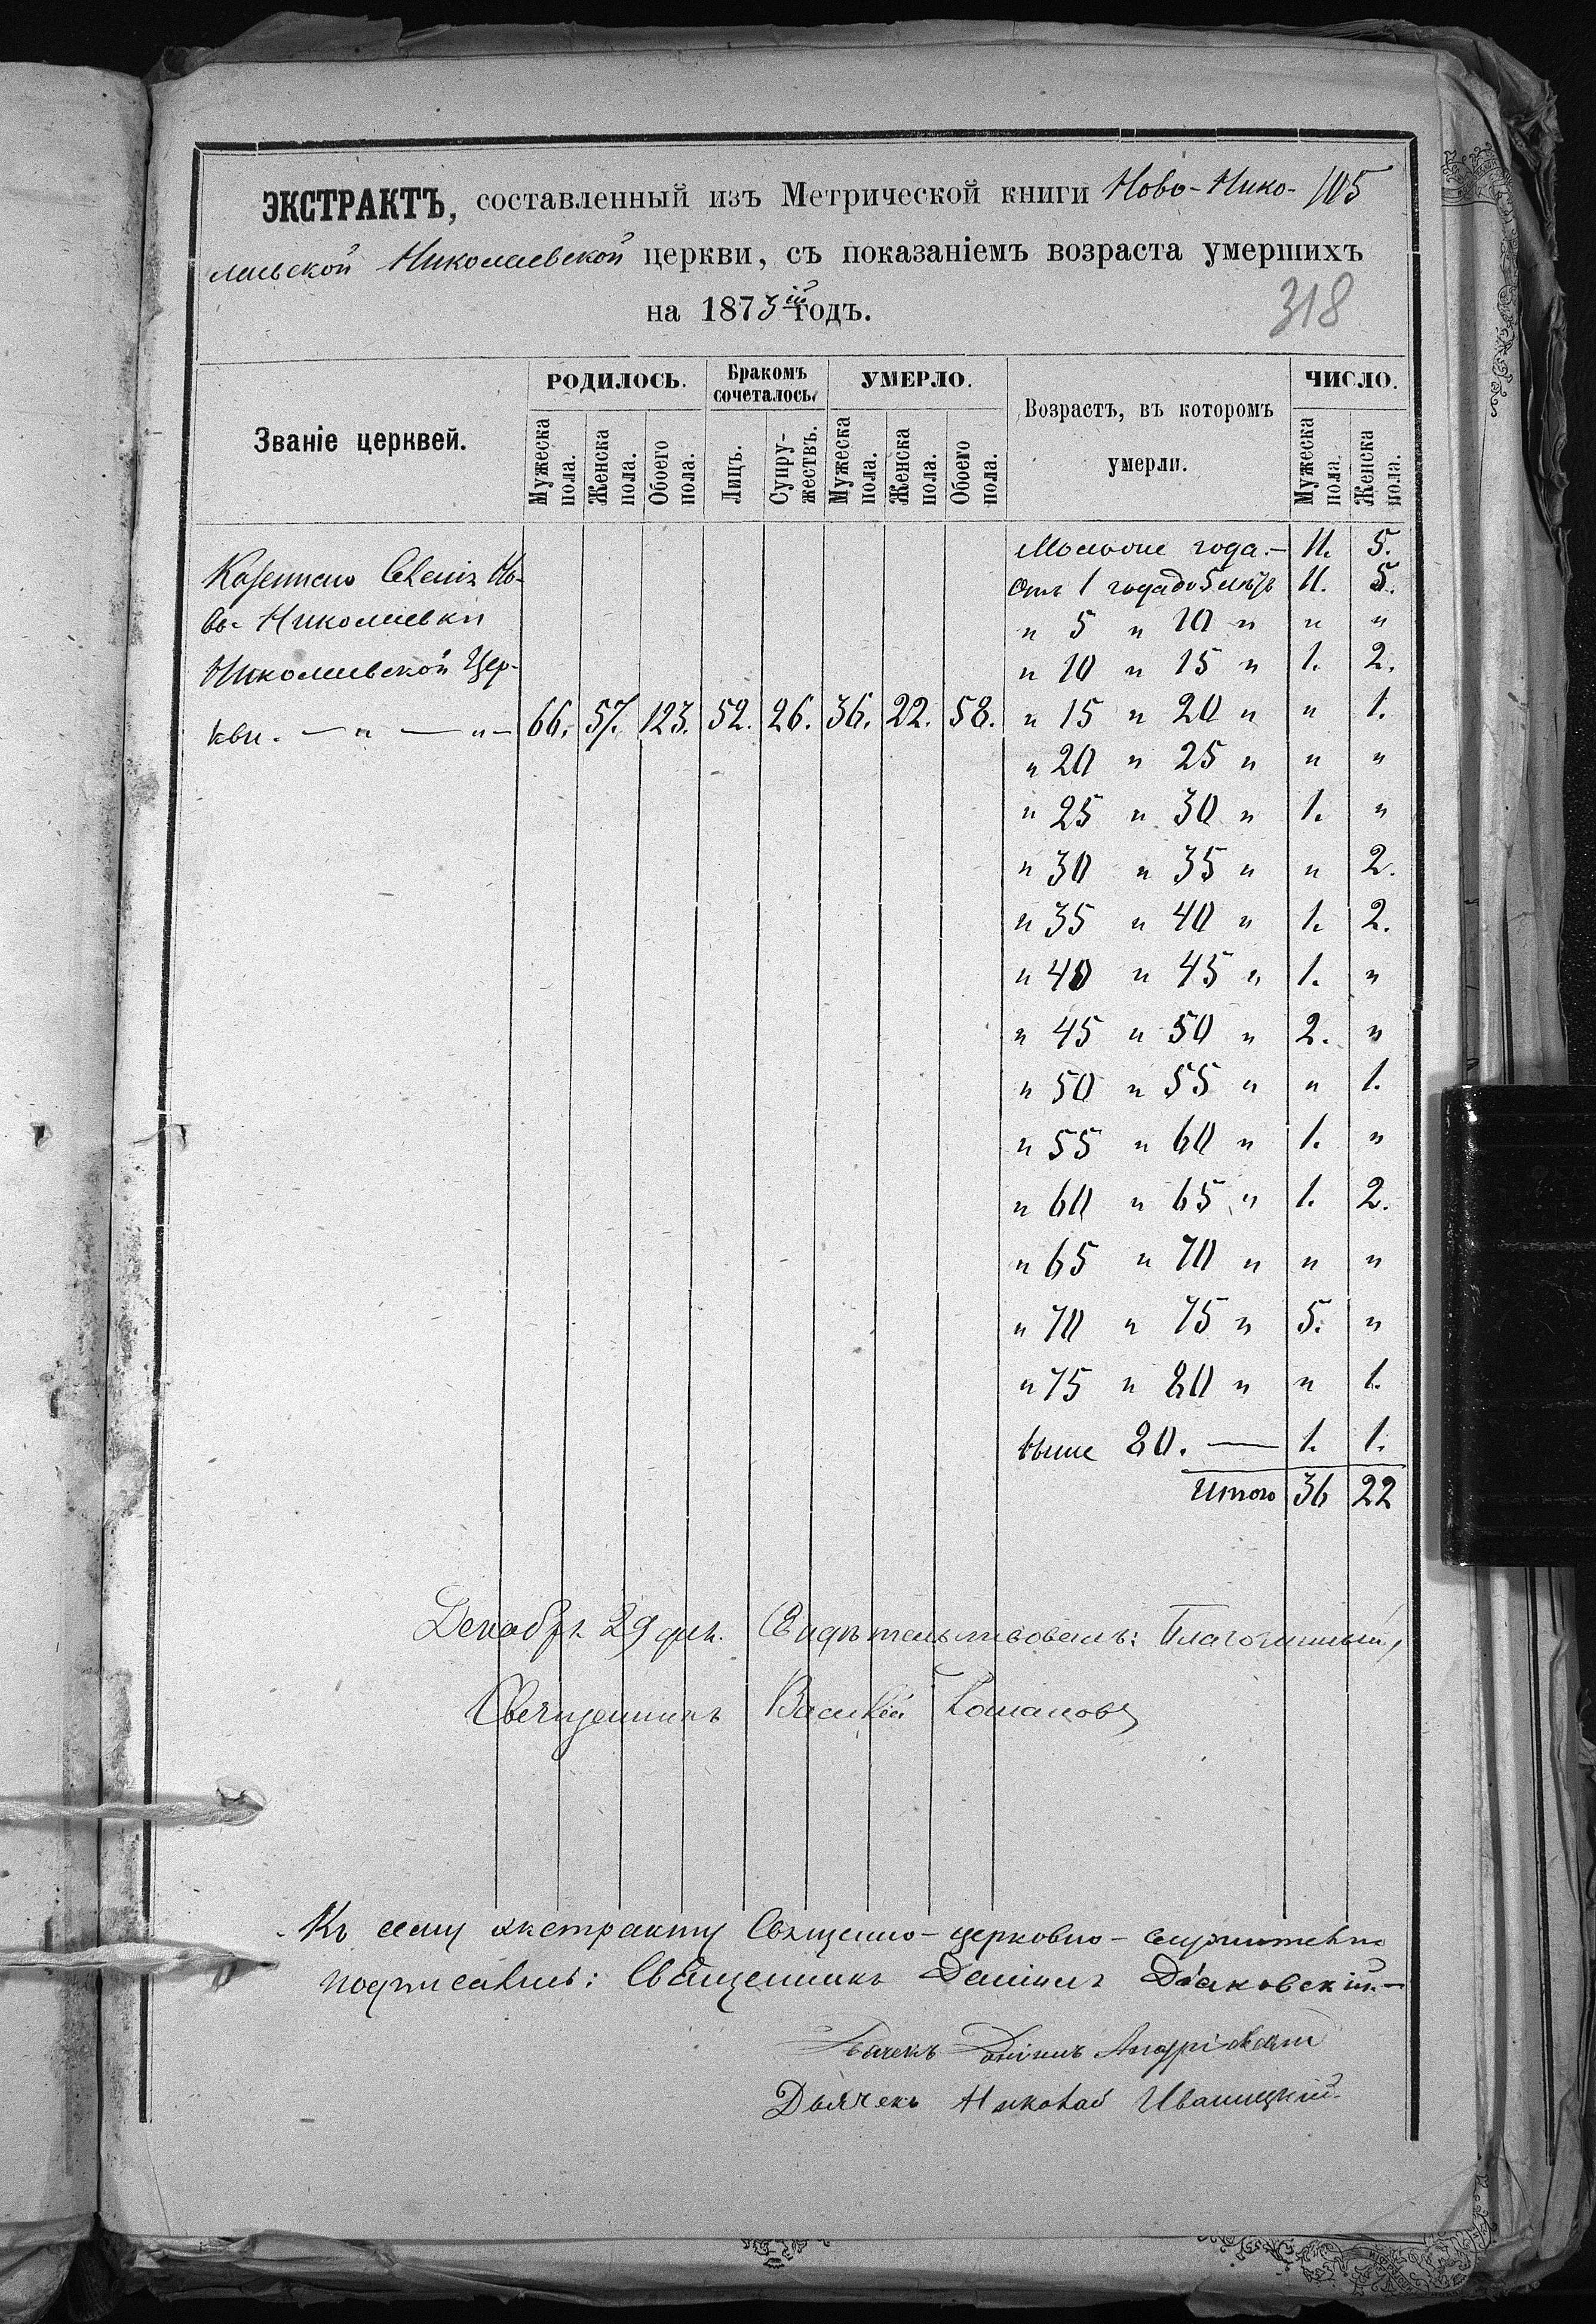 ЭКСТРАКТЪ, составленный изъ Метрической книги Ново-Нико- 105
лаевской Николаевской церкви, съ показаніемъ возраста умершихъ
на 1873й годъ.
318
Званіе церквей.
РОДИЛОСЬ.
Бракомъ сочеталось.
УМЕРЛО.
Возрастъ, въ которомъ умерли.
ЧИСЛО.
Мужеска пола.
Женска пола.
Обоего пола.
Лицъ.
Супружествъ.
Мужеска пола.
Женска пола.
Обоего пола.
Мужеска пола.
Женска пола.
Казеннаго Но-
во-Николаевки
Николаевской Цер-
кви. — " — " — 66. 57. 123. 52. 26. 36. 22. 58.
года. — 11. 5.
Отъ 1 года до 5 лѣтъ 11. 5.
" 5 " 10 " " "
" 10 " 15 " 1. 2.
" 15 " 20 " " 1.
" 20 " 25 " " "
" 25 " 30 " 1. "
" 30 " 35 " " 2.
" 35 " 40 " 1. 2.
" 40 " 45 " 1. "
" 45 " 50 " 2. "
" 50 " 55 " " 1.
" 55 " 60 " 1. "
" 60 " 65 " 1. 2.
" 65 " 70 " " "
" 70 " 75 " 5. "
" 75 " 80 " " 1.
выше 80. — 1. 1.
Итого 36 22
Декабря 29 дня. Свидѣтельствовалъ: Благочинный,
Священникъ Василій Романовъ
Къ сему экстракту Священно-церковно-служители
подписались: Священникъ Даніилъ Дьаковскій. —
Дьячекъ
Дьячекъ Николай Иваницкій.